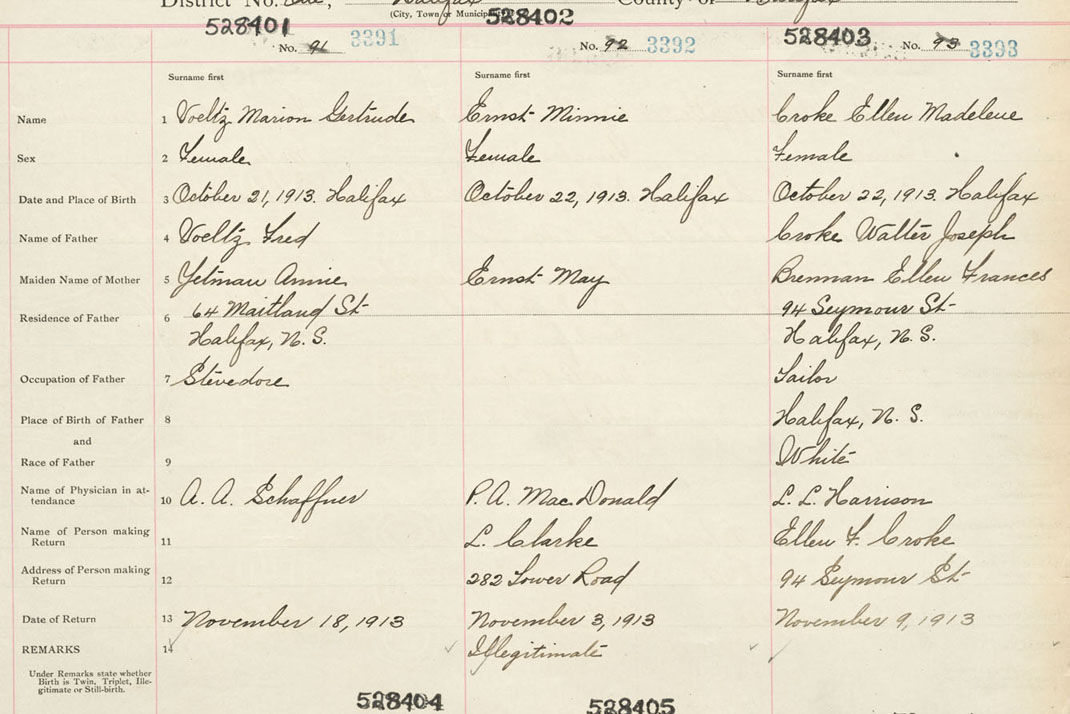 District No. One, Halifax County of Halifax
(City, Town or Municipality)
528401 528402 528403
No. 91 3391 No. 92 3392 No. 93 3393
Surname first Surname first Surname first
Name 1 Voeltz Marion Gertrude Ernst Minnie Croke Ellen Madeleue
Sex 2 Female Female Female
Date and Place of Birth 3 October 21, 1913. Halifax October 22, 1913. Halifax October 22, 1913. Halifax
Name of Father 4 Voeltz Fred Croke Walter Joseph
Maiden Name of Mother 5 Yetman Annie Ernst May Brennan Ellen Frances
Residence of Father 6 64 Maitland St 94 Seymour St
Halifax, N. S. Halifax, N. S.
Occupation of Father 7 Stevedore Tailor
Place of Birth of Father 8 Halifax, N. S.
and
Race of Father 9 White
Name of Physician in at-
tendance 10 A. A. Schaffner P. A. MacDonald L. L. Harrison
Name of Person making
Return 11 L. Clarke Ellen F. Croke
Address of Person making
Return 12 282 Tower Road 94 Seymour St
Date of Return 13 November 18, 1913 November 3, 1913 November 9, 1913
REMARKS 14 Illegitimate
Under Remarks state whether
Birth is Twin, Triplet, Ille-
gitimate or Still-birth.
528404 528405